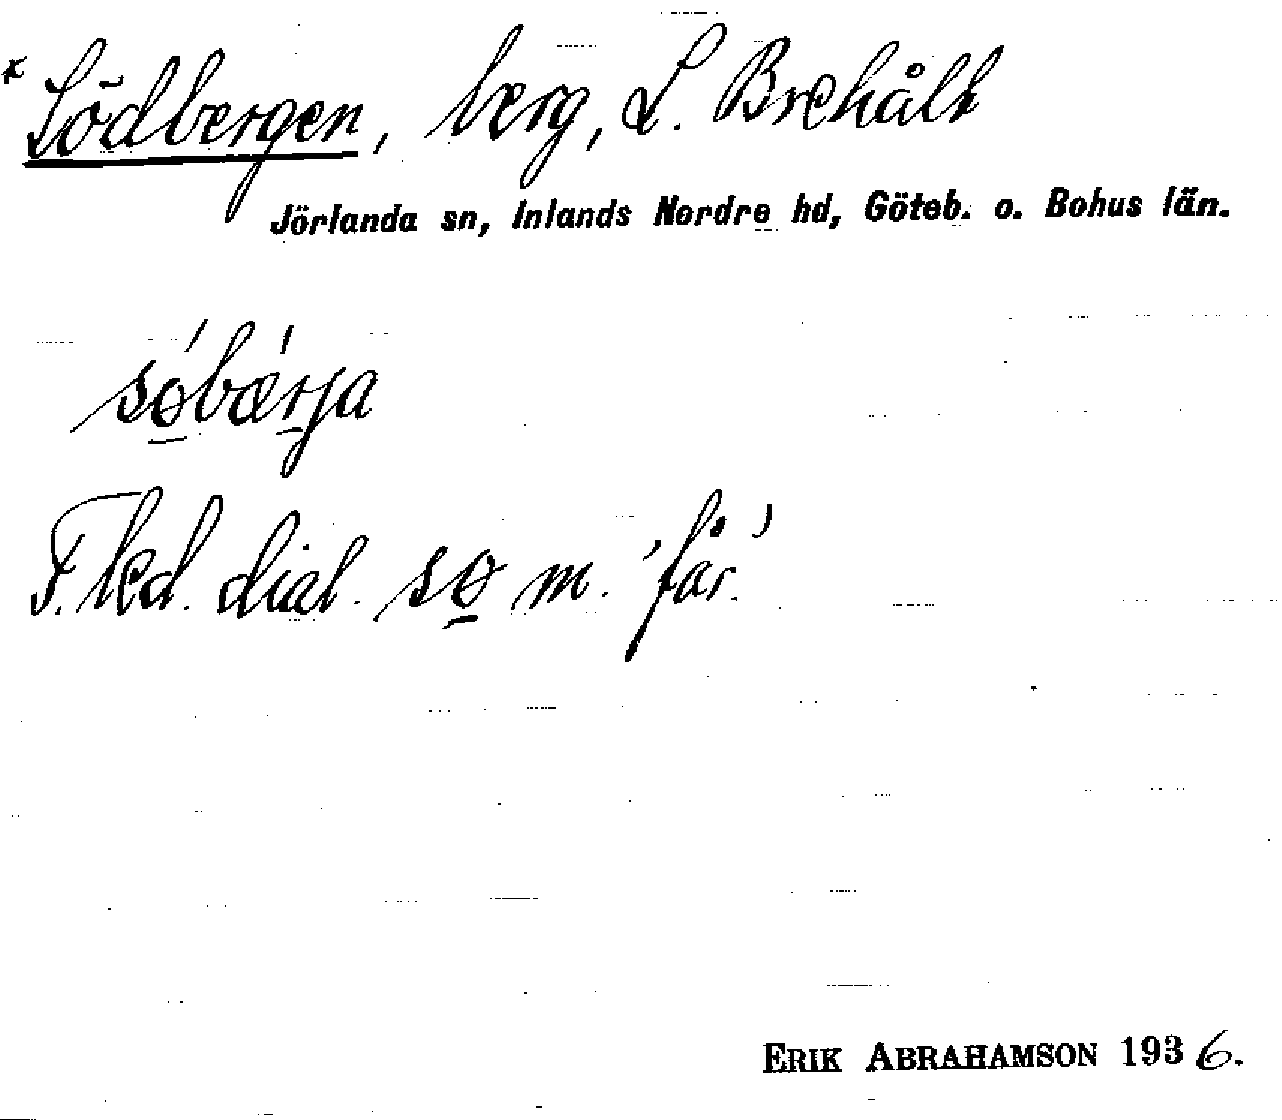 * Södbergen, berg, L. Brehält
Jörlanda sn, Inlands Nordre hd, Göteb. o. Bohus län.
sǿ̱bǽrja
F. led. dial. sø̱ m. 'får.'
ERIK ABRAHAMSON 1936.